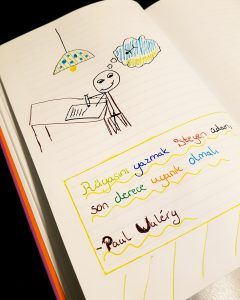 Rüyasını yazmak isteyen adam,
son derece uyanık olmalı
-Paul Valéry